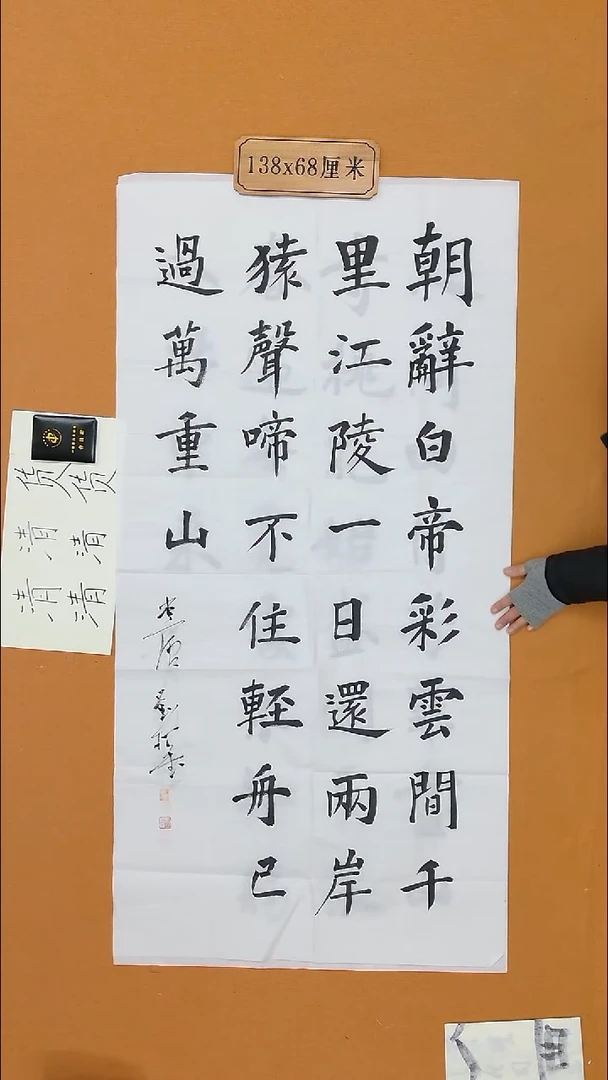 138x68厘米
朝辭白帝彩雲間千
里江陵一日還兩岸
猿聲啼不住軽舟已
過萬重山
劉
货货
清清
清清